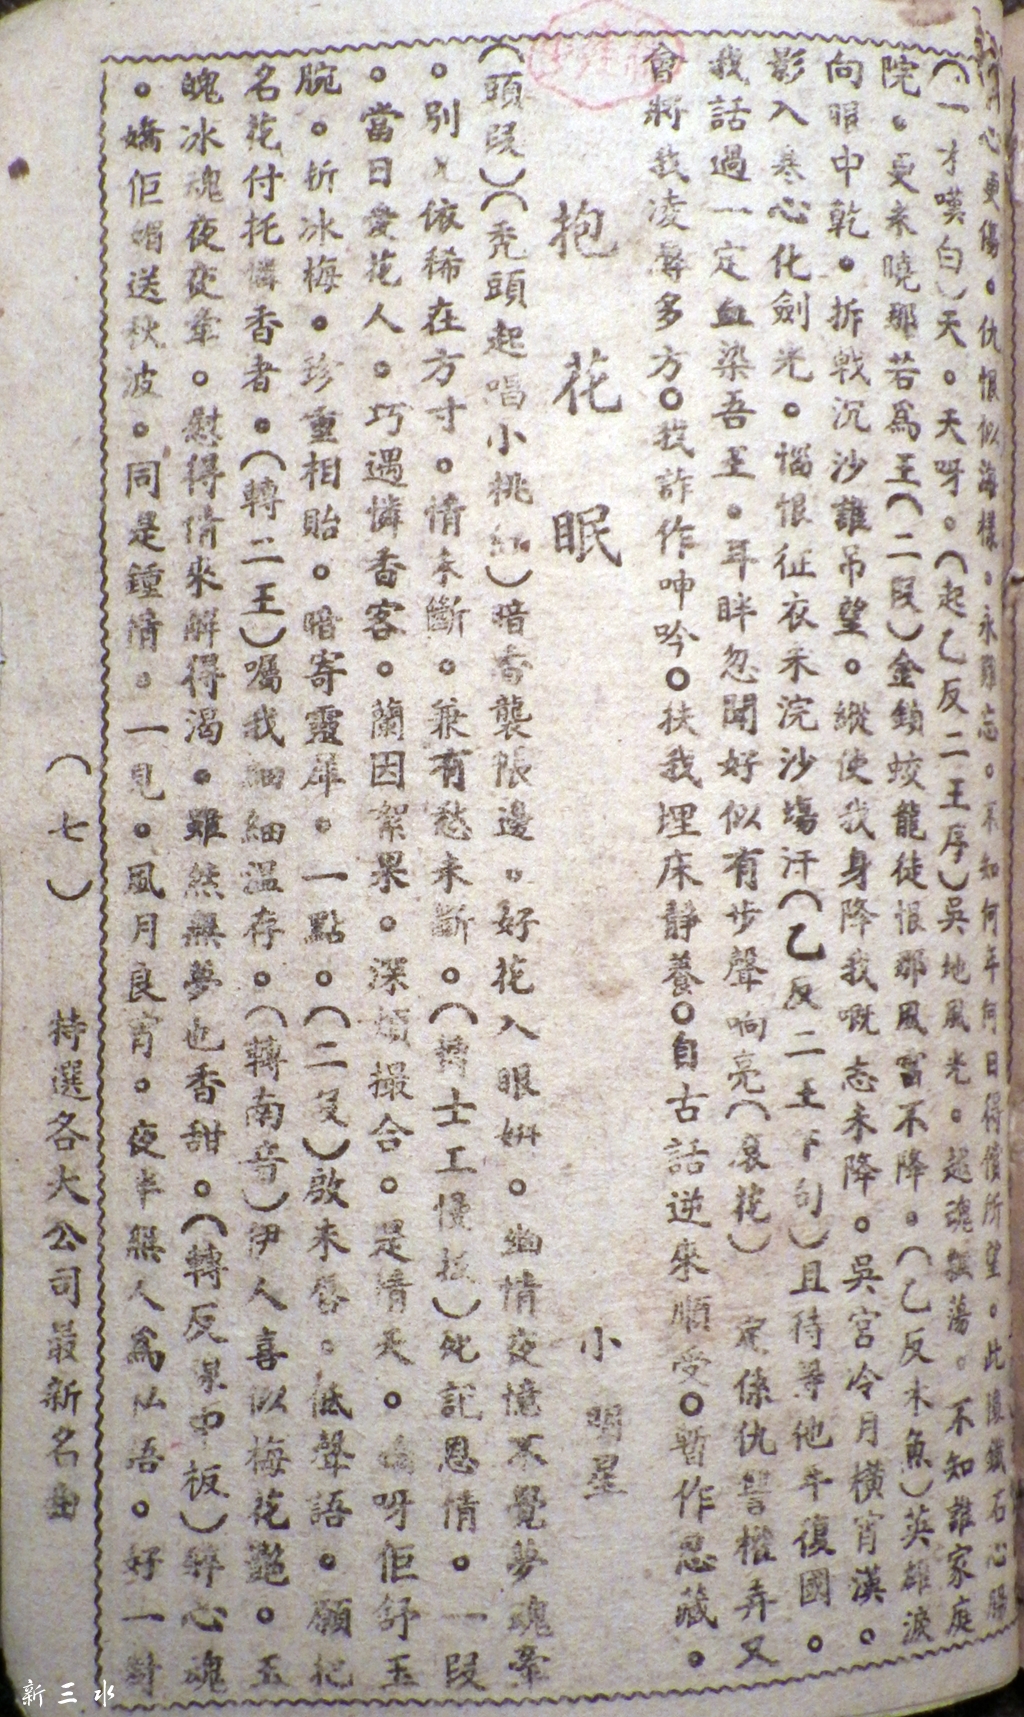 心更傷。仇恨似海樣。永難忘。不知何年何日得償所望。此恨鐵石心腸
（一才嘆白）天。天呀。（起乙反二王序）吳地風光。起魂飄蕩。不知誰家庭
院。更未曉那若為王（二段）金鎖蛟龍徒恨那風雷不降。（乙反木魚）英雄淚
向眼中乾。拆戟沉沙誰吊望。縱使我身降我嘅志未降。吳宮冷月橫宵漢。
影入寒心化劍光。惱恨征衣未浣沙場汗（乙反二王下句）且待等他年復國。
我話過一定血染吾王。耳畔忽聞好似有步聲响亮（哀花）　定係仇讐權弄又
會將我凌辱多方。我詐作呻吟。扶我埋床靜養。自古話逆來順受。暫作忍藏。
抱花眠　小明星
（頭段）（禿頭起唱小桃紅）暗香襲帳邊。好花入眼妍。幽情夜憶不覺夢魂牽
。別 依稀在方寸。情未斷。兼有愁未斷。（轉士工慢板）死記恩情。一段
。當日愛花人。巧遇憐香客。蘭因絮果。深煩撮合。是情天。 呀佢舒玉
腕。折冰梅。珍重相貽。暗寄靈犀。一點。（二 ）啟朱唇。低聲語。願把
名花付托憐香者。（轉二王）囑我細細溫存。（轉南音）伊人喜似梅花艷。玉
魄冰魂夜夜牽。慰得情來解得渴。雖然無夢也香甜。（轉反線中板）醉心魂
。嬌佢媚送秋波。同是鍾情。一見。風月良宵。夜半無人為私語。好一對
（七）　特選各大公司最新名曲
新三水